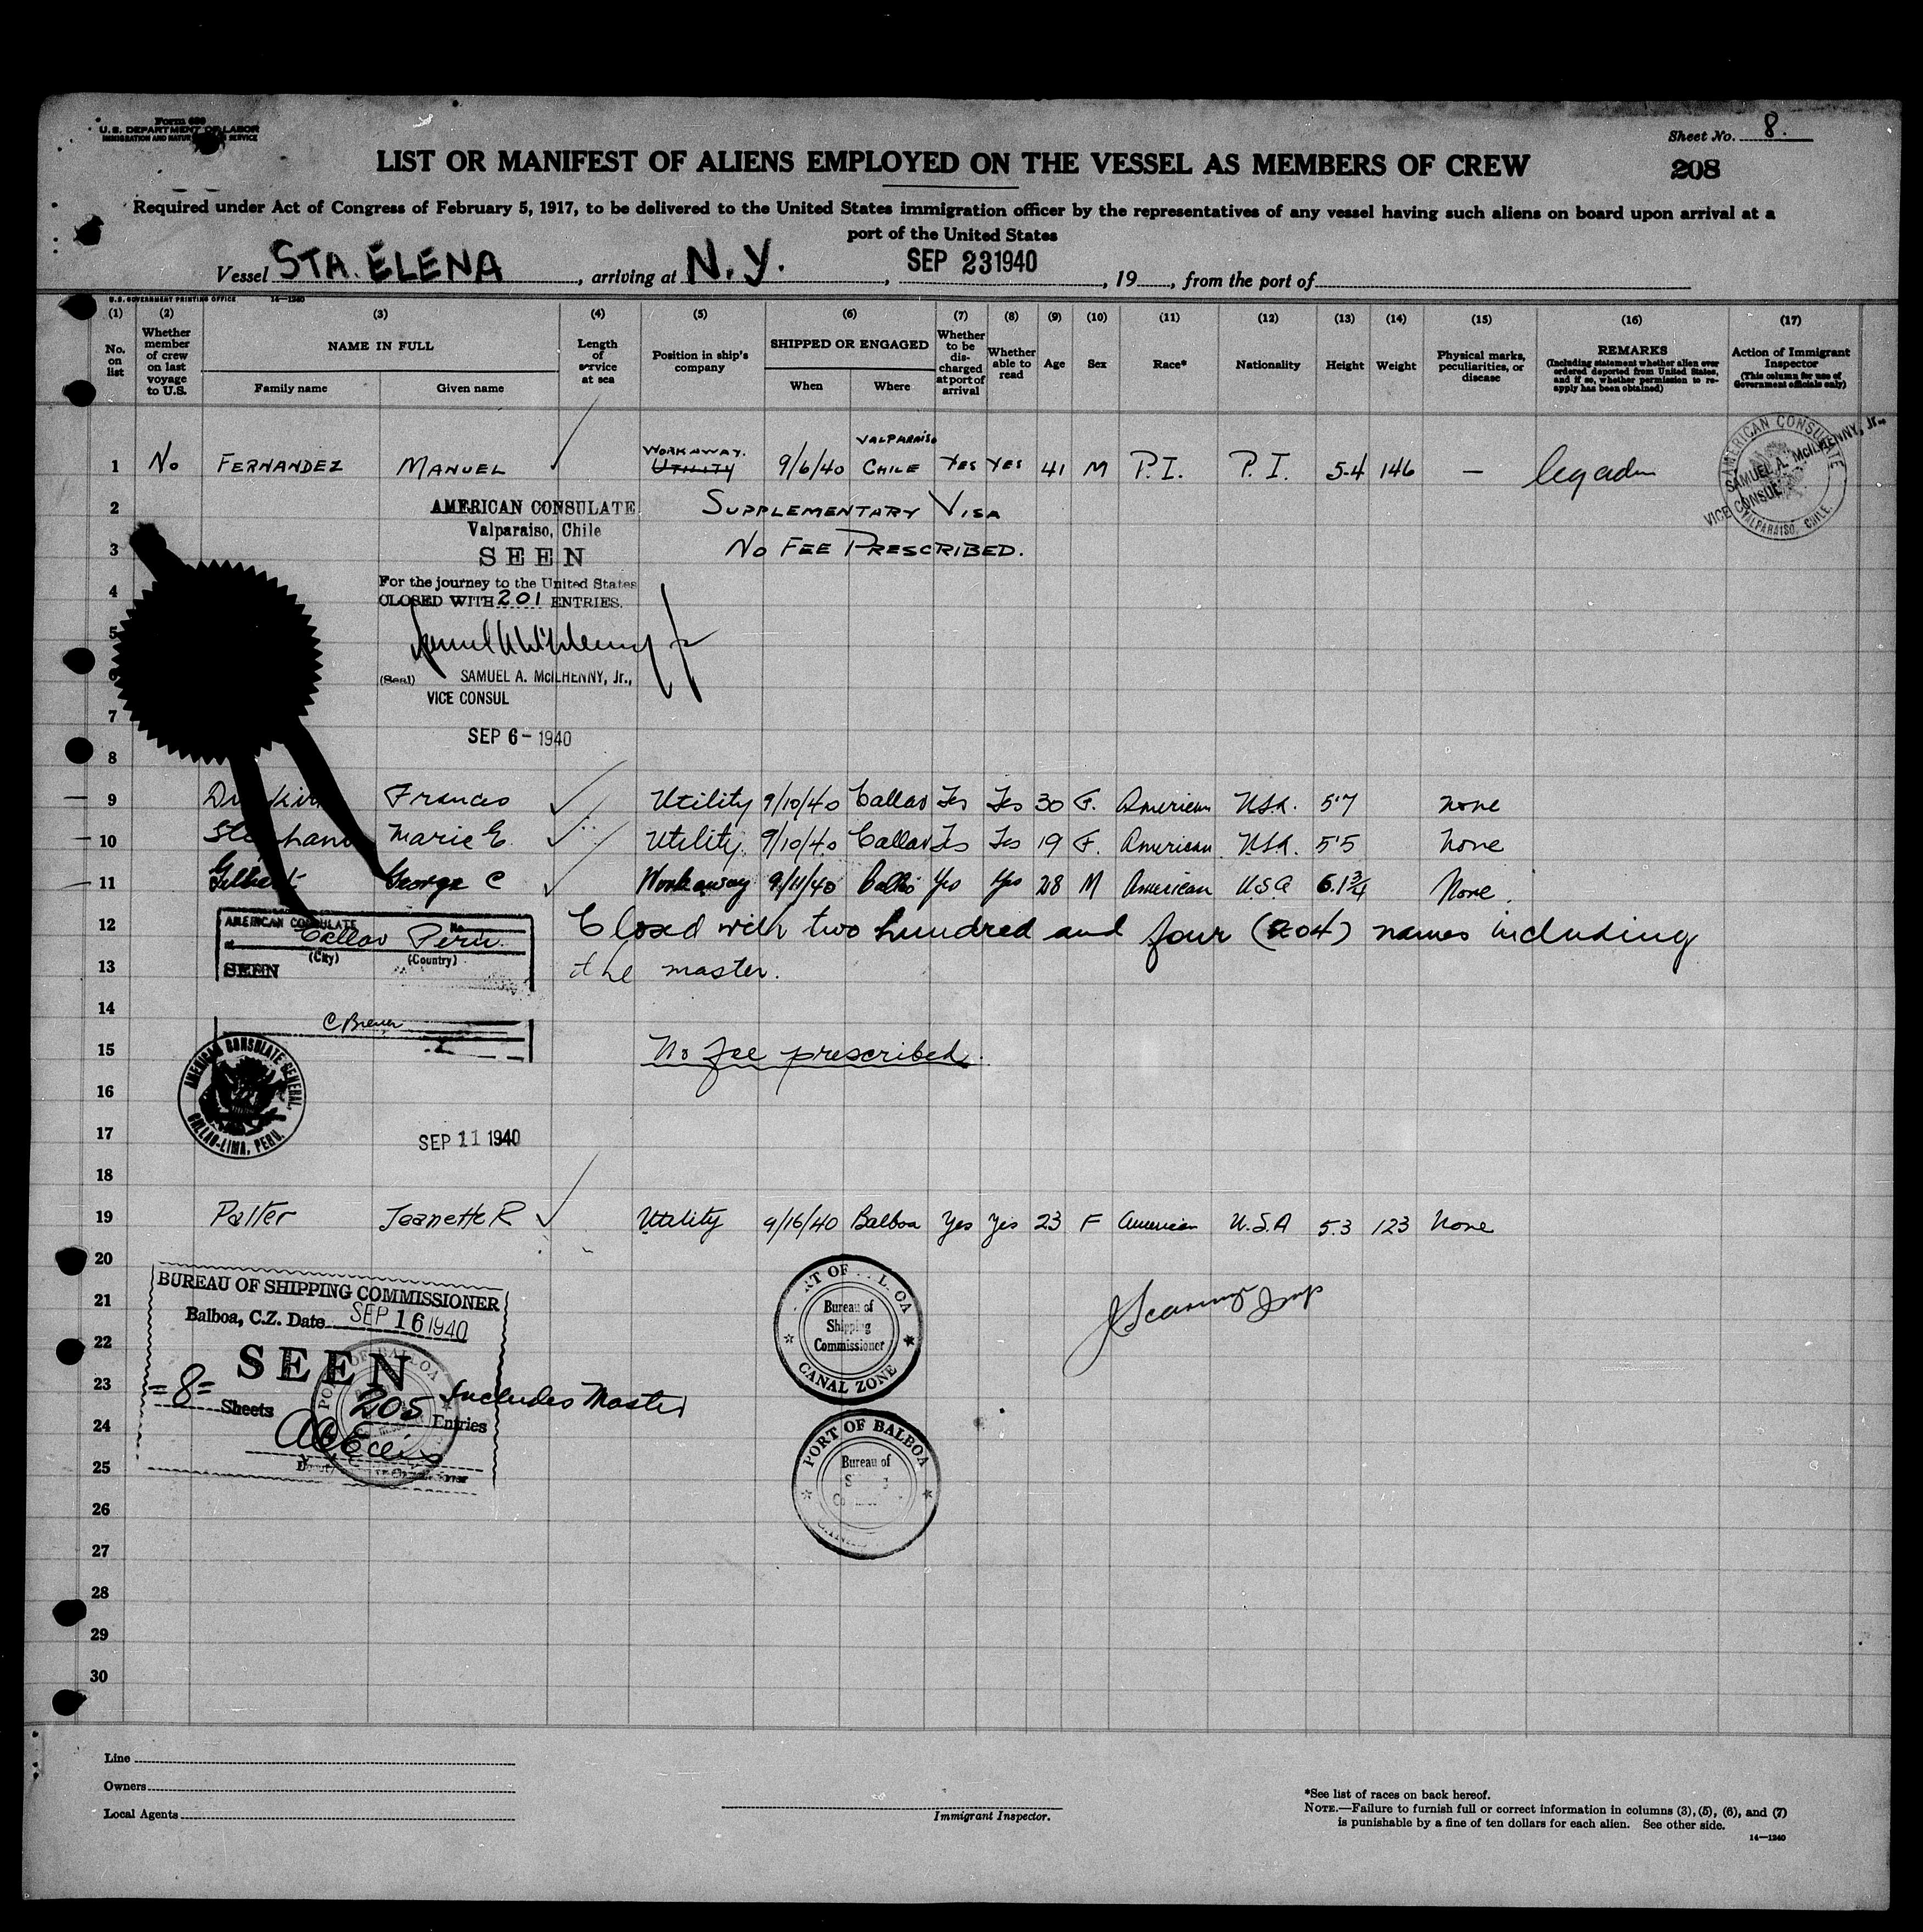 Form 680
U.S. DEPARTMENT OF LABOR
IMMIGRATION AND NATUR SERVICE
Sheet No. 8.
LIST OR MANIFEST OF ALIENS EMPLOYED ON THE VESSEL AS MEMBERS OF CREW
208
Required under Act of Congress of February 5, 1917, to be delivered to the United States immigration officer by the representatives of any vessel having such aliens on board upon arrival at a
port of the United States
Vessel STA. ELENA, arriving at N.Y., SEP 23 1940, 19, from the port of
U.S. GOVERNMENT PRINTING OFFICE 14—1240
(1) (2) (3) (4) (5) (6) (7) (8) (9) (10) (11) (12) (13) (14) (15) (16) (17)
No. on list
Whether member of crew on last voyage to U.S.
NAME IN FULL
Family name
Given name
Length of service at sea
Position in ship's company
SHIPPED OR ENGAGED
When
Where
Whether to be discharged at port of arrival
Whether able to read
Age
Sex
Race*
Nationality
Height
Weight
Physical marks, peculiarities, or disease
REMARKS
(Including statement whether alien ever ordered deported from United States, and if so, whether permission to re-apply has been obtained)
Action of Immigrant Inspector
(This column for use of Government officials only)
WORKAWAY. VALPARAISO
1 No FERNANDEZ MANUEL UTILITY 9/6/40 CHILE YES YES 41 M P.I. P.I. 5-4 146 —
AMERICAN CONSULATE
SAMUEL A. McILHENNY, Jr.,
VICE CONSUL
VALPARAISO, CHILE.
2 AMERICAN CONSULATE SUPPLEMENTARY VISA
Valparaiso, Chile
3 SEEN NO FEE PRESCRIBED.
For the journey to the United States
4 CLOSED WITH 201 ENTRIES.
5
6 (Seal) SAMUEL A. McILHENNY, Jr.,
VICE CONSUL
7
SEP 6 - 1940
8
9 Frances Utility 9/10/40 Callao Yes Yes 30 F. American U.S.A. 5'7 none
10 Marie E. Utility 9/10/40 Callao Yes Yes 19 F. American U.S.A. 5'5 None
11 Gilbert George C Workaway 9/11/40 Callao Yes Yes 28 M American U.S.A 6.1¾ None.
12 AMERICAN CONSULATE No.
at Callao Peru Closed with two hundred and four (204) names including
(City) (Country)
13 SEEN the master.
14
15 No fee prescribed.
AMERICAN CONSULATE GENERAL
CALLAO-LIMA, PERU.
16
17 SEP 11 1940
18
19 Palter Jeanette R Utility 9/16/40 Balboa Yes Yes 23 F American U.S.A 5.3 123 None
20
BUREAU OF SHIPPING COMMISSIONER
21 Balboa, C.Z. Date SEP 16 1940
22 SEEN
23 =8= Sheets 205 Entries Includes Master
24
25
PORT OF BALBOA
Bureau of
Shipping
Commissioner
CANAL ZONE
PORT OF BALBOA
Bureau of
26
27
28
29
30
Line
Owners
Local Agents
Immigrant Inspector.
*See list of races on back hereof.
NOTE.—Failure to furnish full or correct information in columns (3), (5), (6), and (7)
is punishable by a fine of ten dollars for each alien. See other side.
14—1240